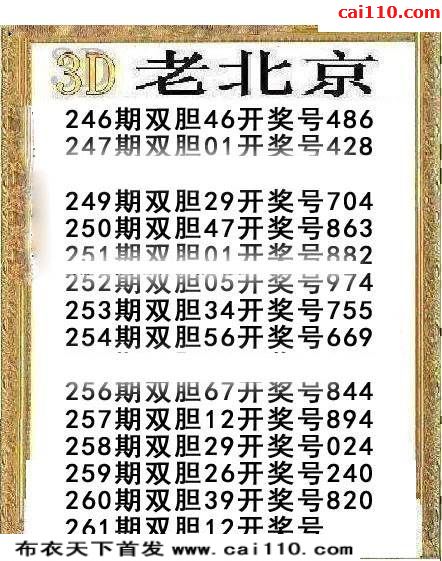 cai110.com
3D 老北京
246期双胆46开奖号486
247期双胆01开奖号428
249期双胆29开奖号704
250期双胆47开奖号863
251期双胆01开奖号882
252期双胆05开奖号974
253期双胆34开奖号755
254期双胆56开奖号669
256期双胆67开奖号844
257期双胆12开奖号894
258期双胆29开奖号024
259期双胆26开奖号240
260期双胆39开奖号820
261期双胆12开奖号
布衣天下首发 www.cai110.com